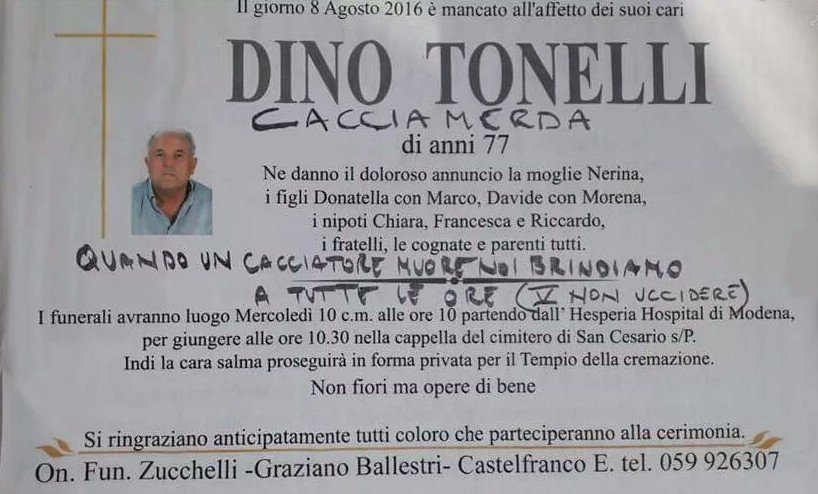 Il giorno 8 Agosto 2016 è mancato all'affetto dei suoi cari
DINO TONELLI
CACCIAMERDA
di anni 77
Ne danno il doloroso annuncio la moglie Nerina,
i figli Donatella con Marco, Davide con Morena,
i nipoti Chiara, Francesca e Riccardo,
i fratelli, le cognate e parenti tutti.
QUANDO UN CACCIATORE MUORE NOI BRINDIAMO
A TUTTE LE ORE (V NON UCCIDERE)
I funerali avranno luogo Mercoledì 10 c.m. alle ore 10 partendo dall' Hesperia Hospital di Modena,
per giungere alle ore 10.30 nella cappella del cimitero di San Cesario s/P.
Indi la cara salma proseguirà in forma privata per il Tempio della cremazione.
Non fiori ma opere di bene
Si ringraziano anticipatamente tutti coloro che parteciperanno alla cerimonia.
On. Fun. Zucchelli -Graziano Ballestri- Castelfranco E. tel. 059 926307